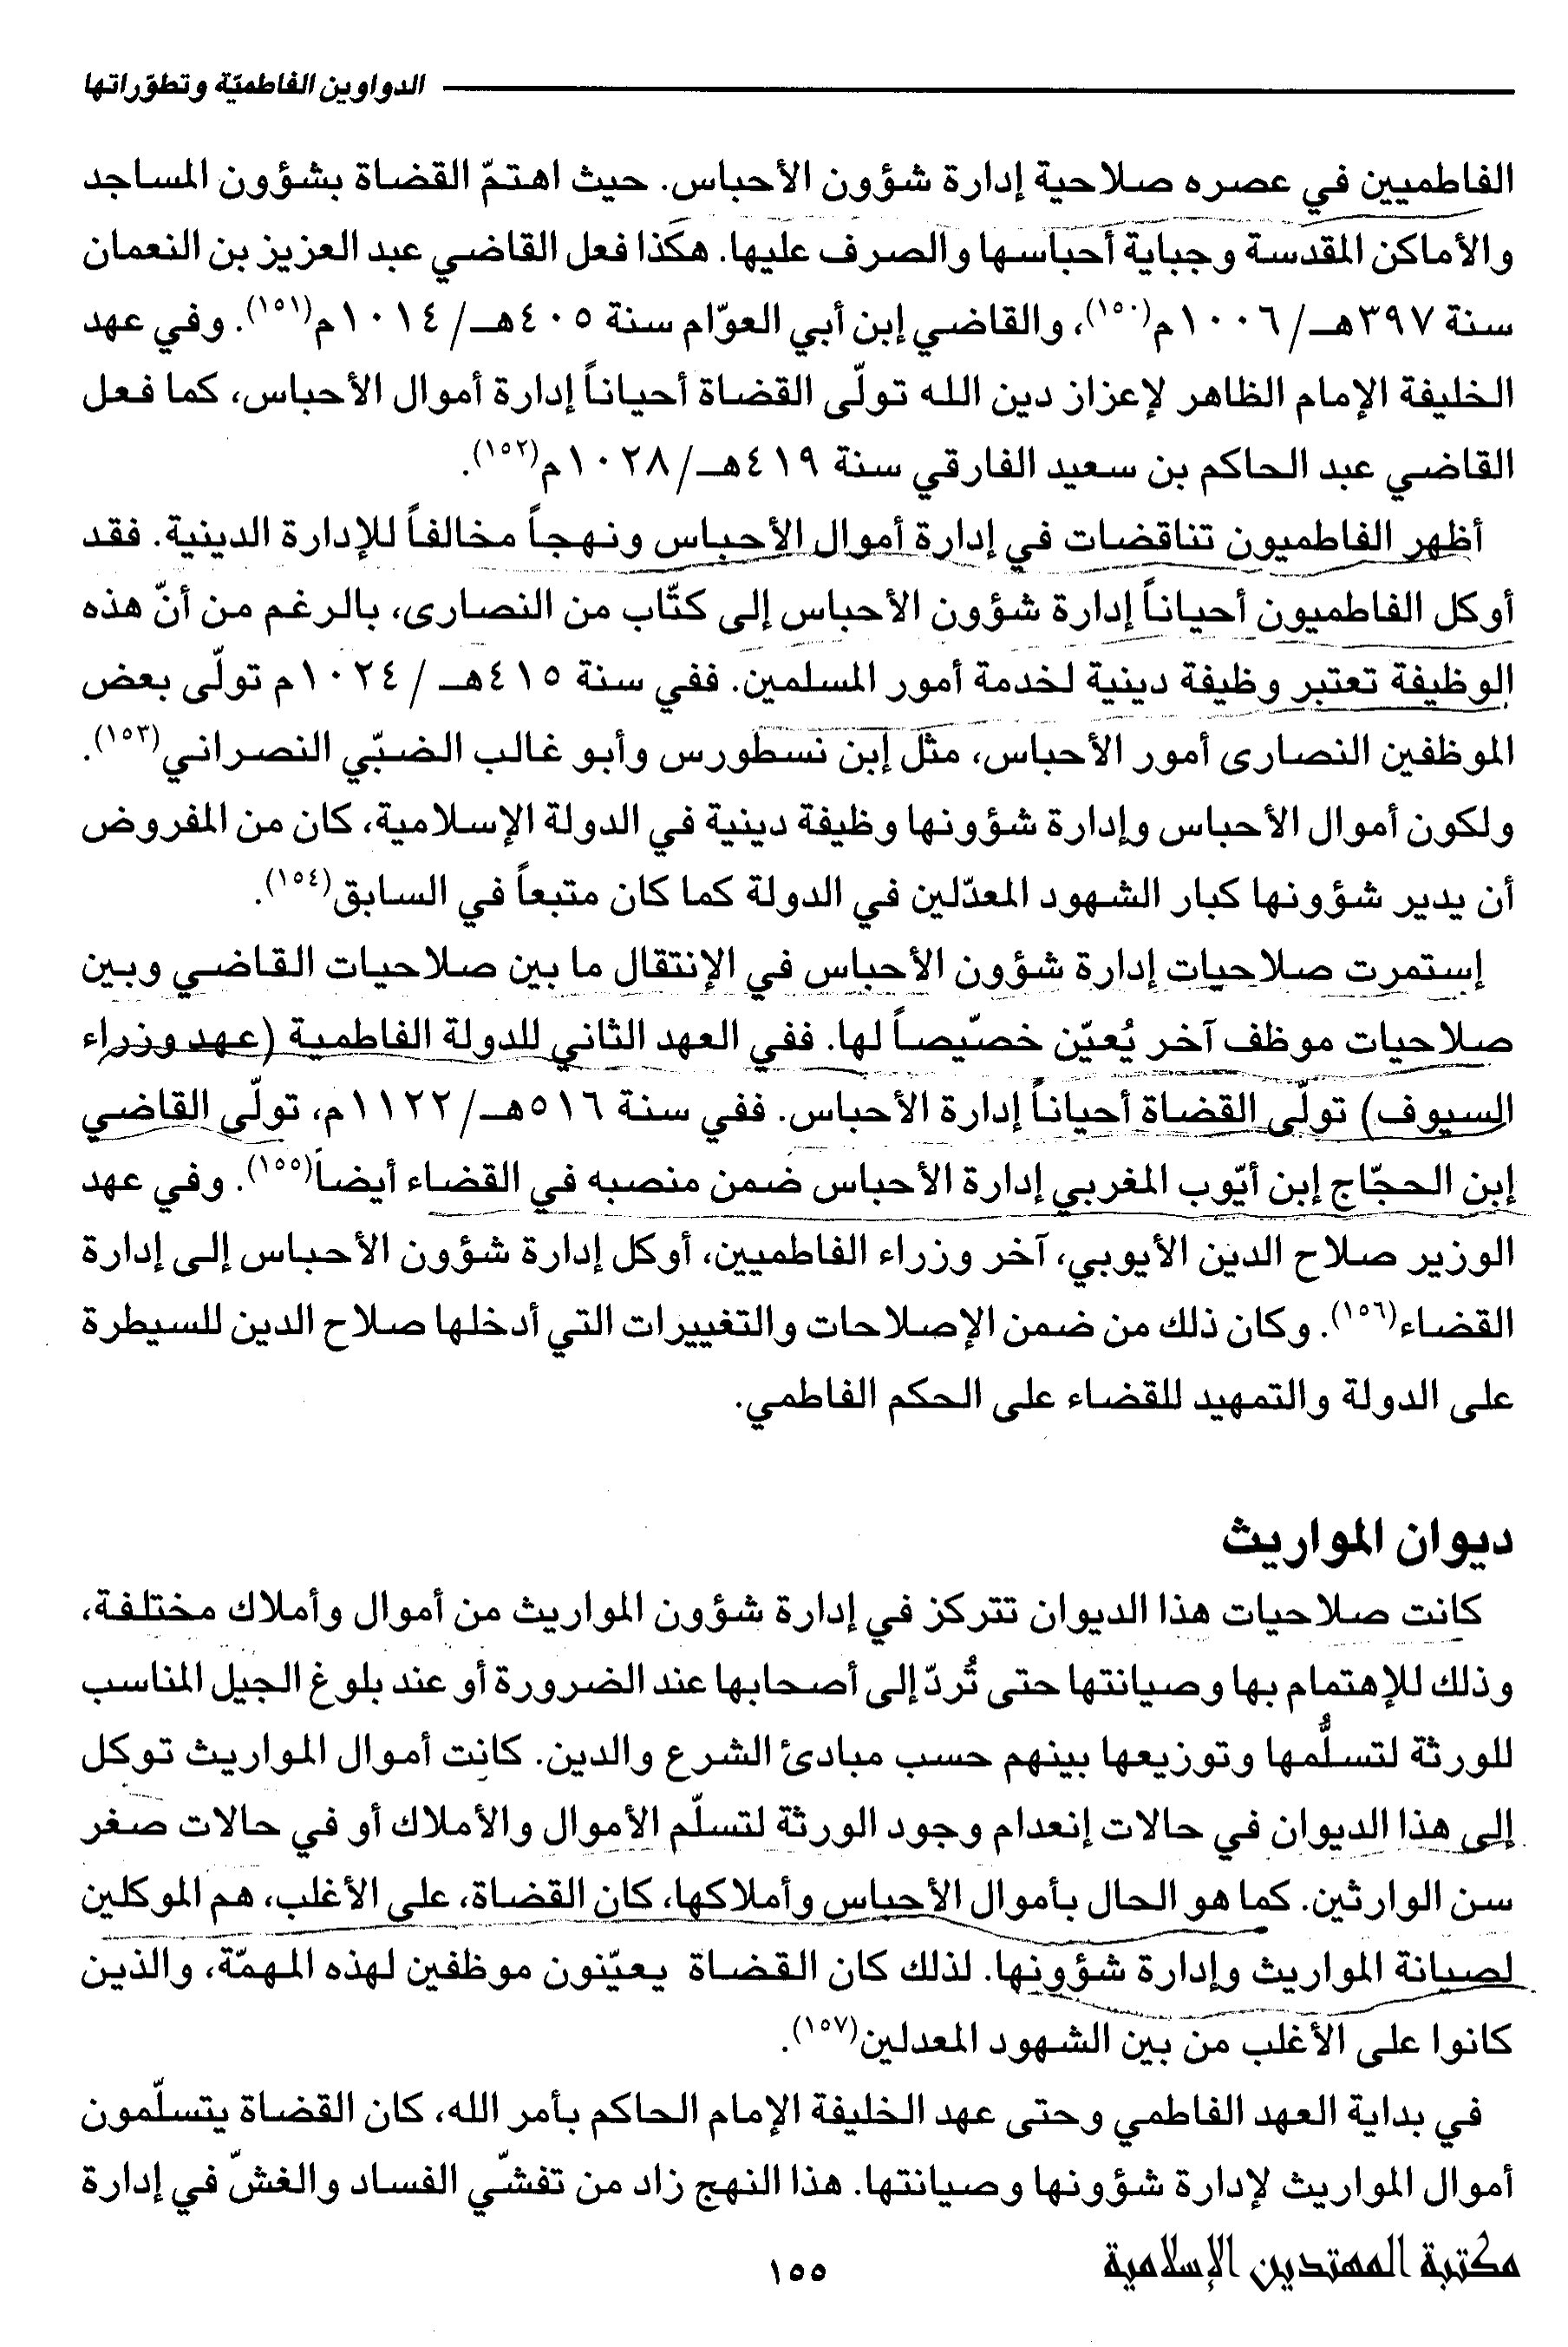 الدواوين الفاطميّة وتطوّراتها
الفاطميين في عصره صلاحية إدارة شؤون الأحباس. حيث اهتمّ القضاة بشؤون المساجد
والأماكن المقدسة وجباية أحباسها والصرف عليها. هكذا فعل القاضي عبد العزيز بن النعمان
سنة ٣٩٧هـ/ ١٠٠٦م(١٥٠)، والقاضي إبن أبي العوّام سنة ٤٠٥هـ/ ١٠١٤م(١٥١). وفي عهد
الخليفة الإمام الظاهر لإعزاز دين الله تولّى القضاة أحياناً إدارة أموال الأحباس، كما فعل
القاضي عبد الحاكم بن سعيد الفارقي سنة ٤١٩هـ/١٠٢٨م(١٥٢).
أظهر الفاطميون تناقضات في إدارة أموال الأحباس ونهجاً مخالفاً للإدارة الدينية. فقد
أوكل الفاطميون أحياناً إدارة شؤون الأحباس إلى كتّاب من النصارى، بالرغم من أنّ هذه
الوظيفة تعتبر وظيفة دينية لخدمة أمور المسلمين. ففي سنة ٤١٥هـ / ١٠٢٤م تولّى بعض
الموظفين النصارى أمور الأحباس، مثل إبن نسطورس وأبو غالب الضبّي النصراني(١٥٣).
ولكون أموال الأحباس وإدارة شؤونها وظيفة دينية في الدولة الإسلامية، كان من المفروض
أن يدير شؤونها كبار الشهود المعدّلين في الدولة كما كان متبعاً في السابق(١٥٤).
إستمرت صلاحيات إدارة شؤون الأحباس في الإنتقال ما بين صلاحيات القاضي وبين
صلاحيات موظف آخر يُعيّن خصّيصاً لها. ففي العهد الثاني للدولة الفاطمية (عهد وزراء
السيوف) تولّى القضاة أحياناً إدارة الأحباس. ففي سنة ٥١٦هـ/١١٢٢م، تولّى القاضي
إبن الحجّاج إبن أيّوب المغربي إدارة الأحباس ضمن منصبه في القضاء أيضاً(١٥٥). وفي عهد
الوزير صلاح الدين الأيوبي، آخر وزراء الفاطميين، أوكل إدارة شؤون الأحباس إلى إدارة
القضاء(١٥٦). وكان ذلك من ضمن الإصلاحات والتغييرات التي أدخلها صلاح الدين للسيطرة
على الدولة والتمهيد للقضاء على الحكم الفاطمي.
ديوان المواريث
كانت صلاحيات هذا الديوان تتركز في إدارة شؤون المواريث من أموال وأملاك مختلفة،
وذلك للإهتمام بها وصيانتها حتى تُردّ إلى أصحابها عند الضرورة أو عند بلوغ الجيل المناسب
للورثة لتسلُّمها وتوزيعها بينهم حسب مبادئ الشرع والدين. كانت أموال المواريث توكل
إلى هذا الديوان في حالات إنعدام وجود الورثة لتسلّم الأموال والأملاك أو في حالات صغر
سن الوارثين. كما هو الحال بأموال الأحباس وأملاكها، كان القضاة، على الأغلب، هم الموكلين
لصيانة المواريث وإدارة شؤونها. لذلك كان القضاة يعيّنون موظفين لهذه المهمّة، والذين
كانوا على الأغلب من بين الشهود المعدلين(١٥٧).
في بداية العهد الفاطمي وحتى عهد الخليفة الإمام الحاكم بأمر الله، كان القضاة يتسلّمون
أموال المواريث لإدارة شؤونها وصيانتها. هذا النهج زاد من تفشّي الفساد والغشّ في إدارة
مكتبة المهتدين الإسلامية
١٥٥